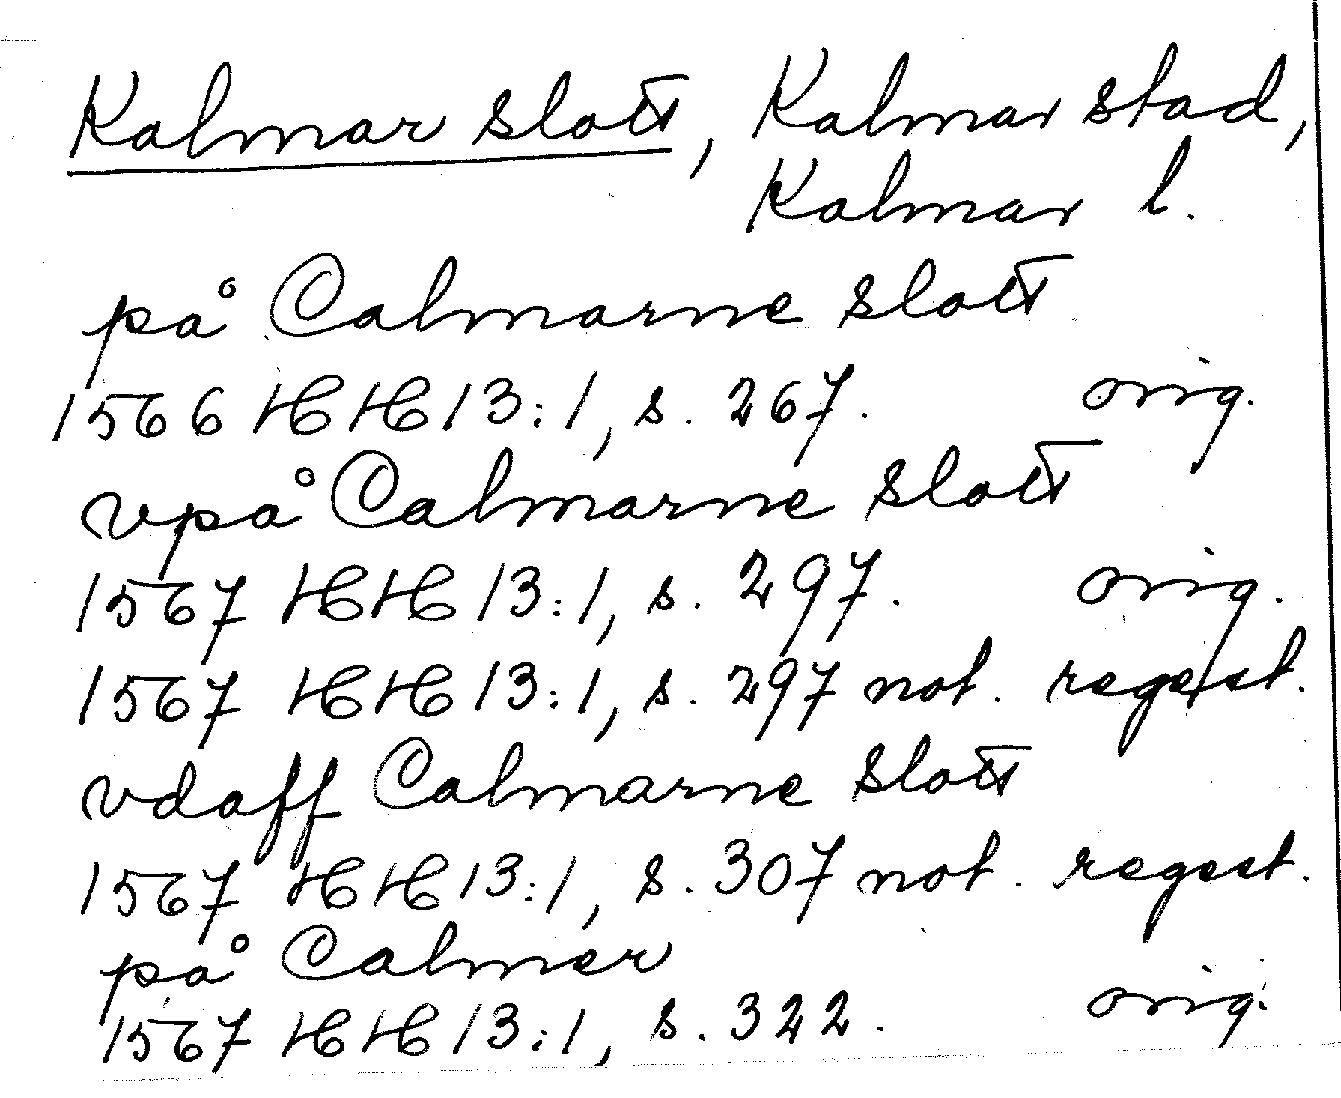 Kalmar slott, Kalmar stad,
Kalmar l.
på Calmarne slott
1566 HH 13:1, s. 267. orig.
vpå Calmarne slott
1567 HH 13:1, s. 297. orig.
1567 HH 13:1, s. 297 not. regest.
vdaff Calmarne slott
1567 HH 13:1, s. 307 not. regest.
på Calmer
1567 HH 13:1, s. 322. orig.